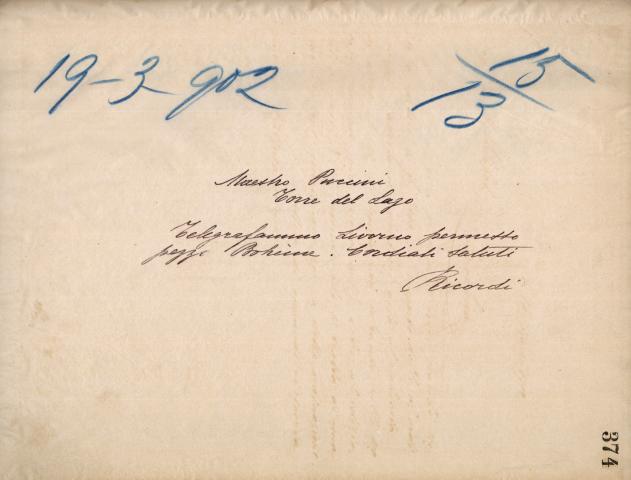 19-3-902
15
13
Maestro Puccini
Torre del Lago
Telegrafammo Livorno permesso
pezzi Bohème. Cordiali saluti
Ricordi
374